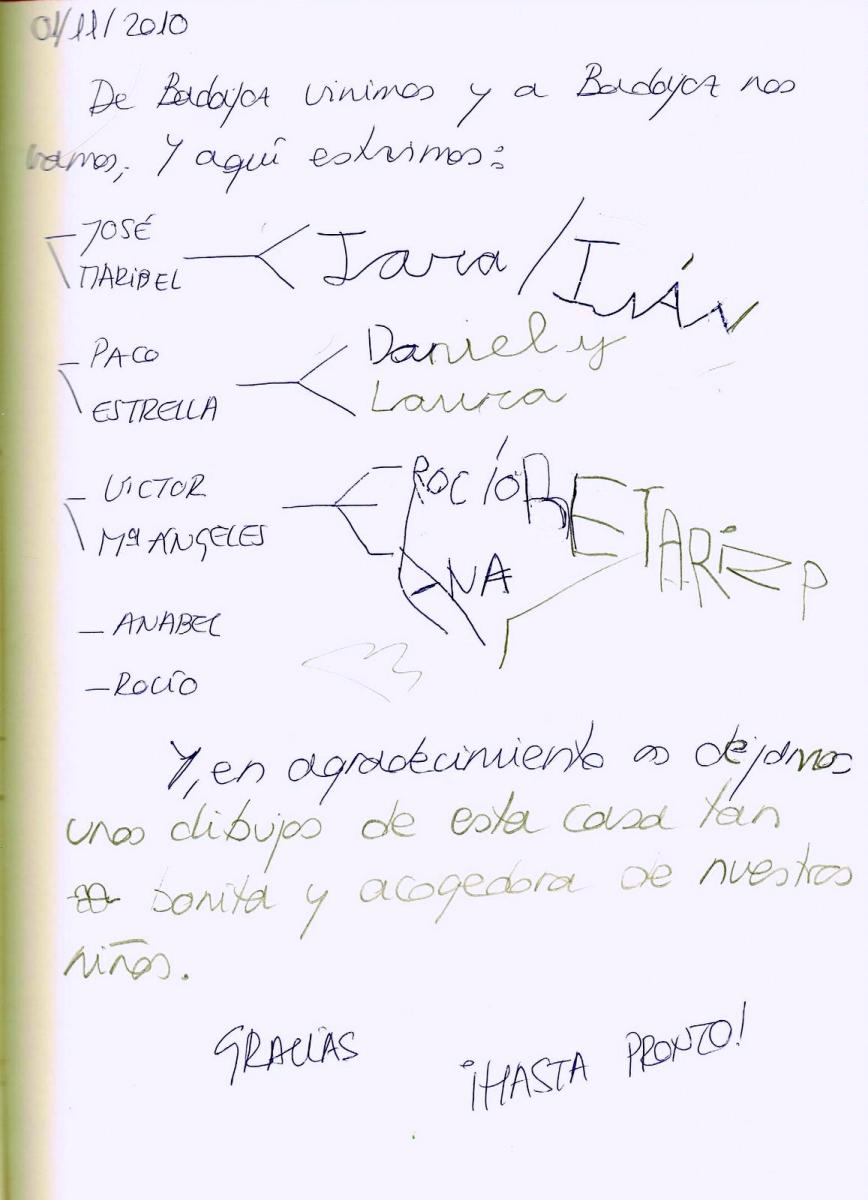 01/11/2010
De Badajoz vinimos y a Badajoz nos
vamos, Y aquí estuvimos:
— JOSÉ
MARIBEL
Jara / Iván
— PACO
ESTRELLA
Daniel y
Laura
— VICTOR
Mª ANGELES
ROCÍO
ANA
— ANABEL
— ROCÍO
Y, en agradecimiento os dejamos
unos dibujos de esta casa tan
bonita y acogedora de nuestros
niños.
GRACIAS
¡HASTA PRONTO!